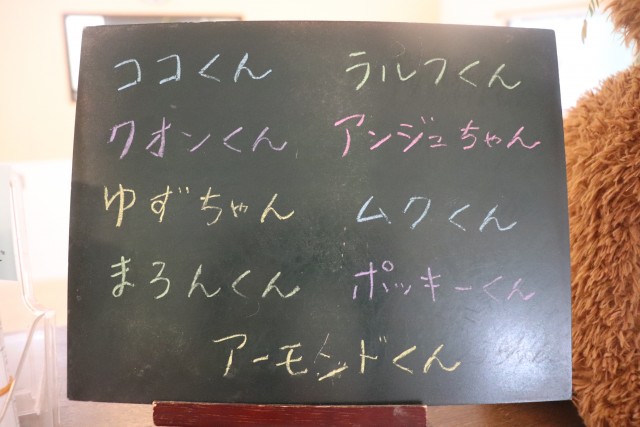 ココくん ラルフくん
クオンくん アンジュちゃん
ゆずちゃん ムクくん
まろんくん ポッキーくん
アーモンドくん